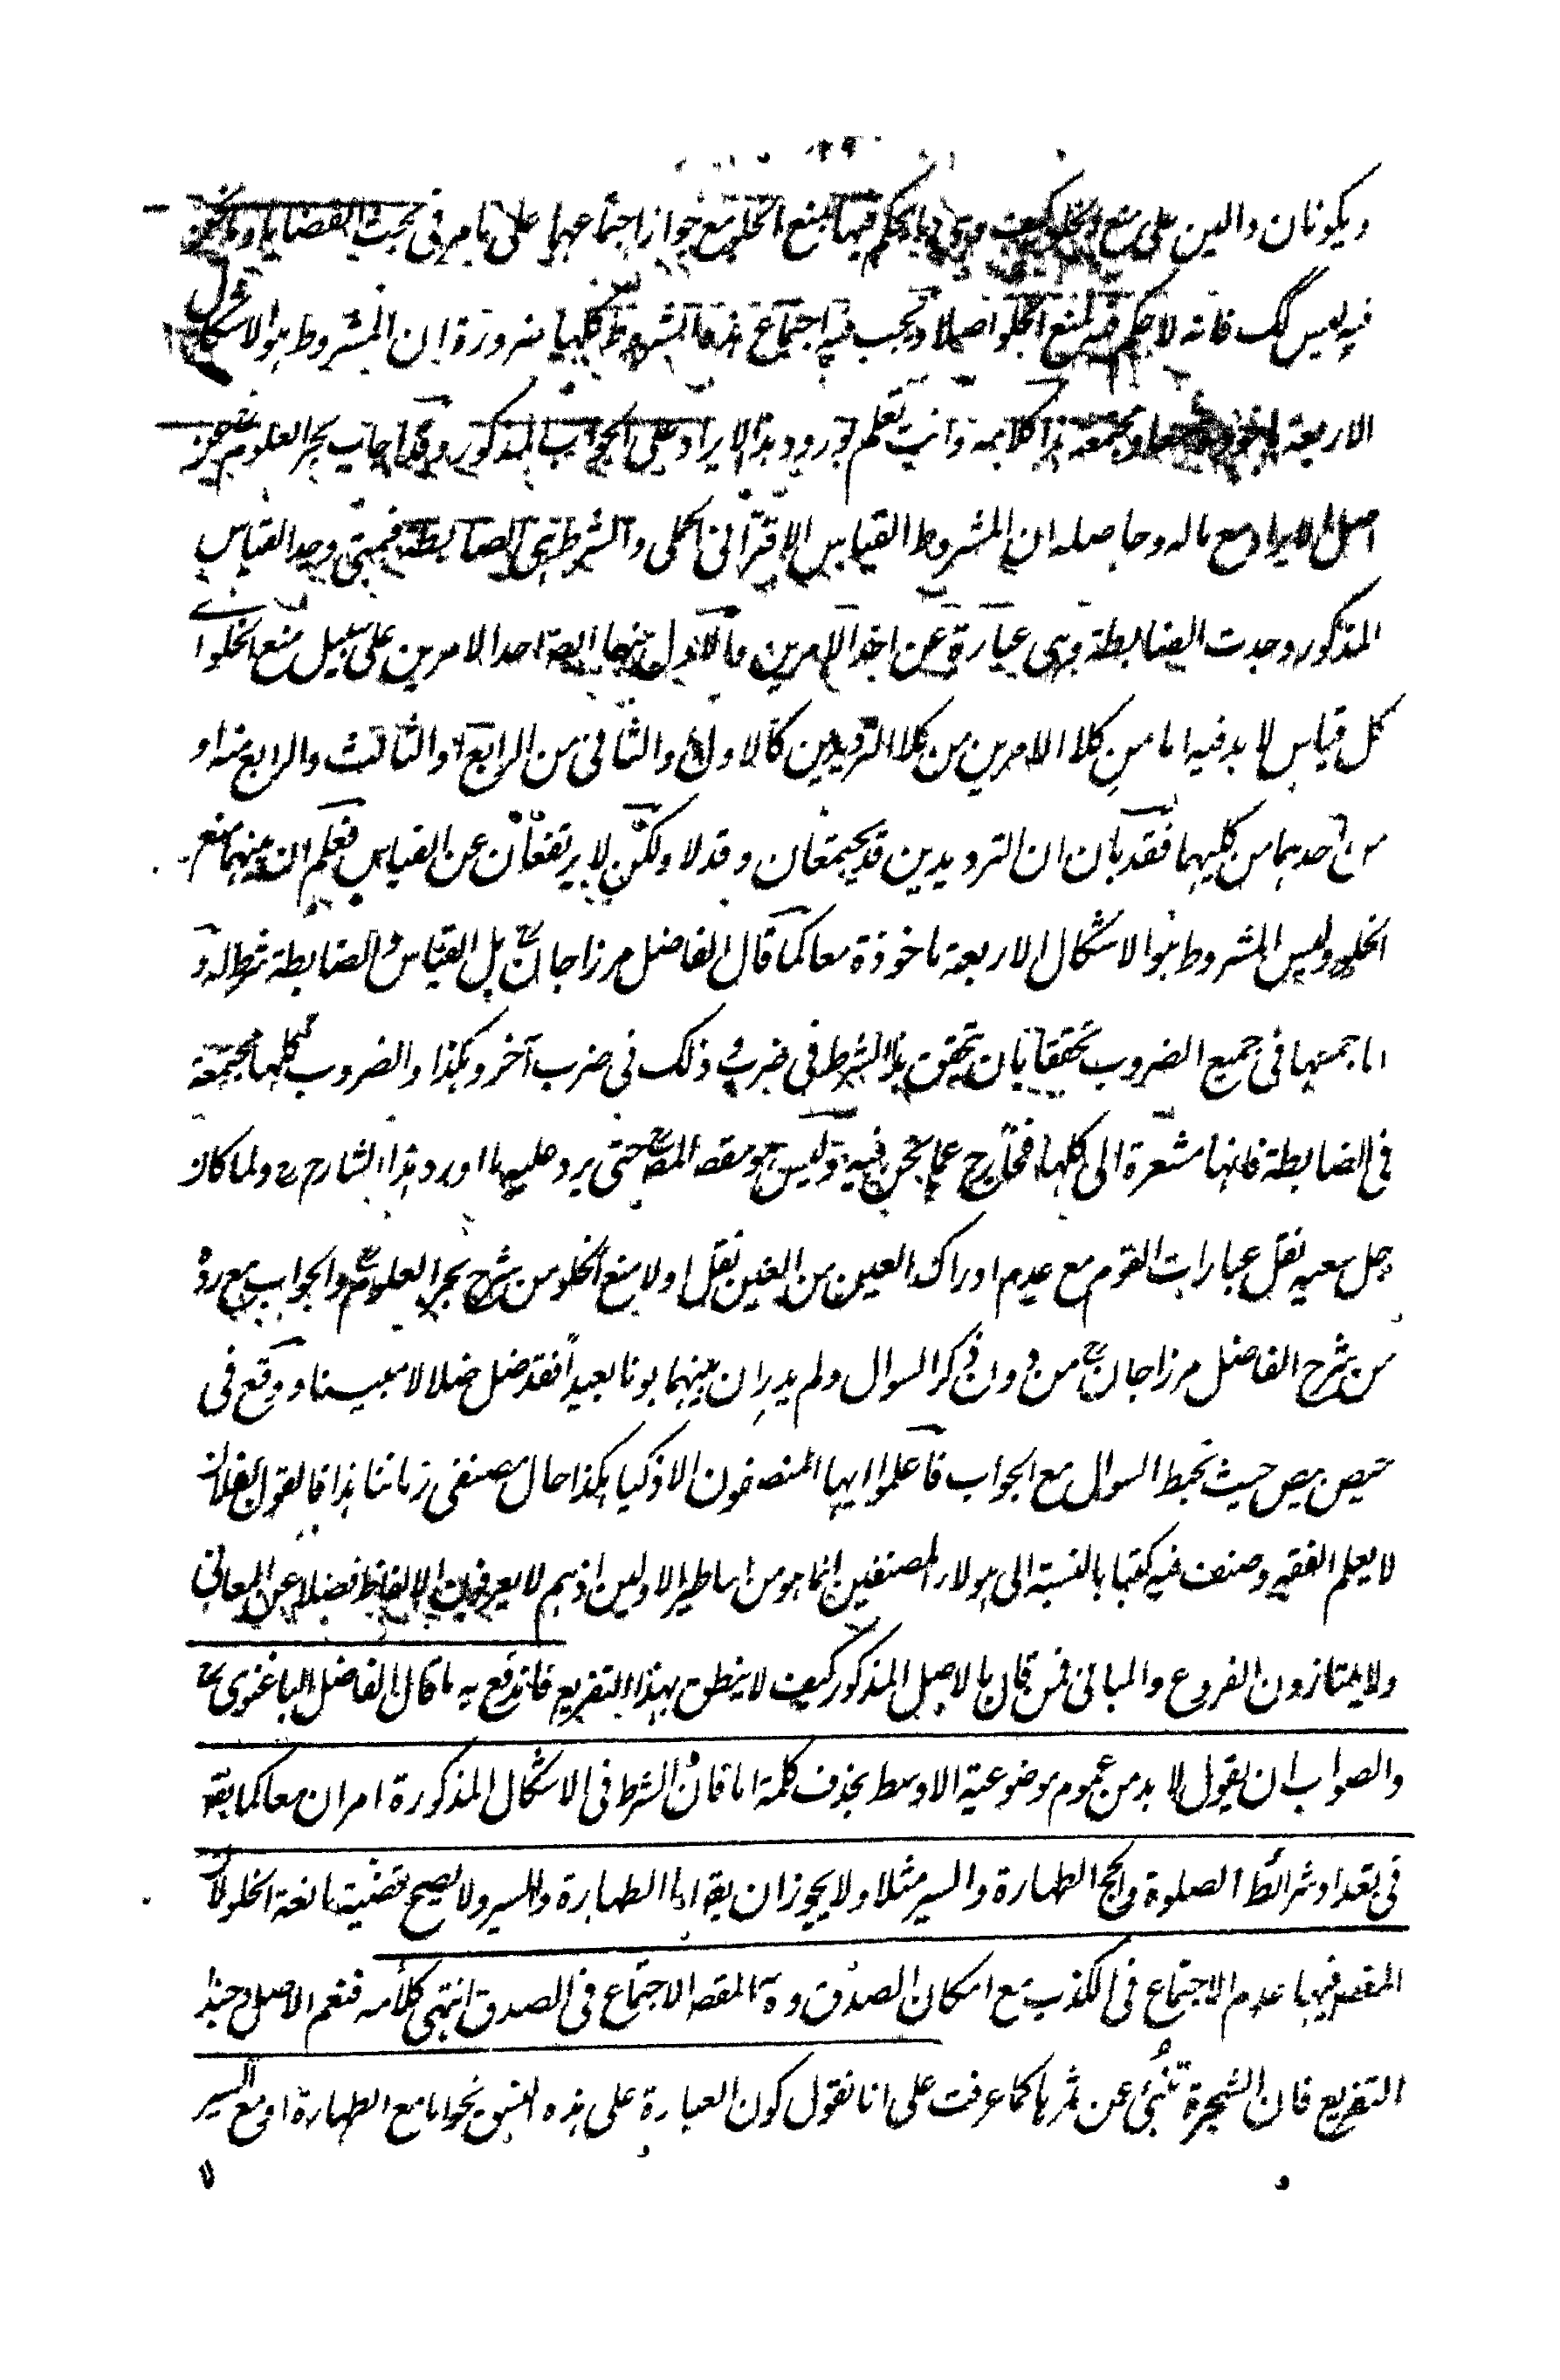 ويكونان دالين على منع الخلو كيف وهى ما يحكم فيها بمنع الخلو مع جواز اجتماعهما على ما مر فى بحث القضايا وما نحن
فيه ليس كك فانه لا حكم فيه لمنع الخلو اصلا و يجب فيه اجتماع هذه الشروط كلها ضرورة ان المشروط هو الاشكال
الاربعة ماخوذة معا ومجتمعة هذا كلامه وانت تعلم ورود هذا الايراد على الجواب المذكور وقد اجاب بحر العلوم رح عن
اصل الايراد مع ما له وحاصله ان المشروط القياس الاقترانى الحملى والشرط هى الضابطة فمتى وجد القياس
المذكور وجدت الضابطة وهى عبارة عن احد الامرين فالاول منها ايضا احد الامرين على سبيل منع الخلو اى
كل قياس لا بد فيه اما من كلا الامرين من كلا الترديدين كالاول والثانى من الرابع او الثالث والرابع منه او
من احدهما من كليهما فقد بان ان الترديدين قد يجتمعان وقد لا ولكن لا يرتفعان عن القياس فعلم ان بينهما منع
الخلو وليس المشروط هو الاشكال الاربعة ماخوذة معا كما قال الفاضل مرزا جان رح بل القياس والضابطة شرط له و
اما جمعها فى جميع الضروب تحققا بان تحقق هذا الشرط فى ضرب و ذلك فى ضرب آخر وهكذا والضروب كلها مجتمعة
فى الضابطة فانها مشعرة الى كلها فخارج عما نحن فيه وليس هو مقصد المصنف حتى يرد عليه ما اورد هذا الشارح رح ولما كان
جل سعيه نقل عبارات القوم مع عدم ادراك العين من الغين نقل اولا منع الخلو من شرح بحر العلوم رح والجواب مع رده
من شرح الفاضل مرزا جان رح من دون ذكر السوال ولم يدر ان بينهما بونا بعيداً فقد ضل ضلالا مبينا ووقع فى
حيص بيص حيث خبط السوال مع الجواب فاعلموا ايها المنصفون الاذكيا هكذا حال مصنفى زماننا هذا فالقول بفلان
لا يعلم الفقه وصنف فيه كتبا بالنسبة الى هولاء المصنفين انما هو من اساطير الاولين اذ هم لا يعرفون الالفاظ فضلا عن المعانى
ولا يمتازون الفروع والمبانى فمن قال بالاصل المذكور كيف لا ينطق بهذا التفريع فاندفع به ما قال الفاضل الباغنوى رح
والصواب ان يقول لا بد من عموم موضوعية الاوسط بحذف كلمة اما فان الشرط فى الاشكال المذكورة امران معا كما يقال
فى تعداد شرائط الصلوة والحج الطهارة والسير مثلا ولا يجوز ان يقال اما الطهارة والسير ولا يصح قضية مانعة الخلو لان
المقصد فيها عدم الاجتماع فى الكذب مع امكان الصدق وههنا المقصد الاجتماع فى الصدق انتهى كلامه فنعم الاصل وحبذا
التفريع فان الشجرة تنبئ عن ثمرها كما عرفت على انا نقول كون العبارة على هذه النسق نحو اما مع الطهارة او مع السير